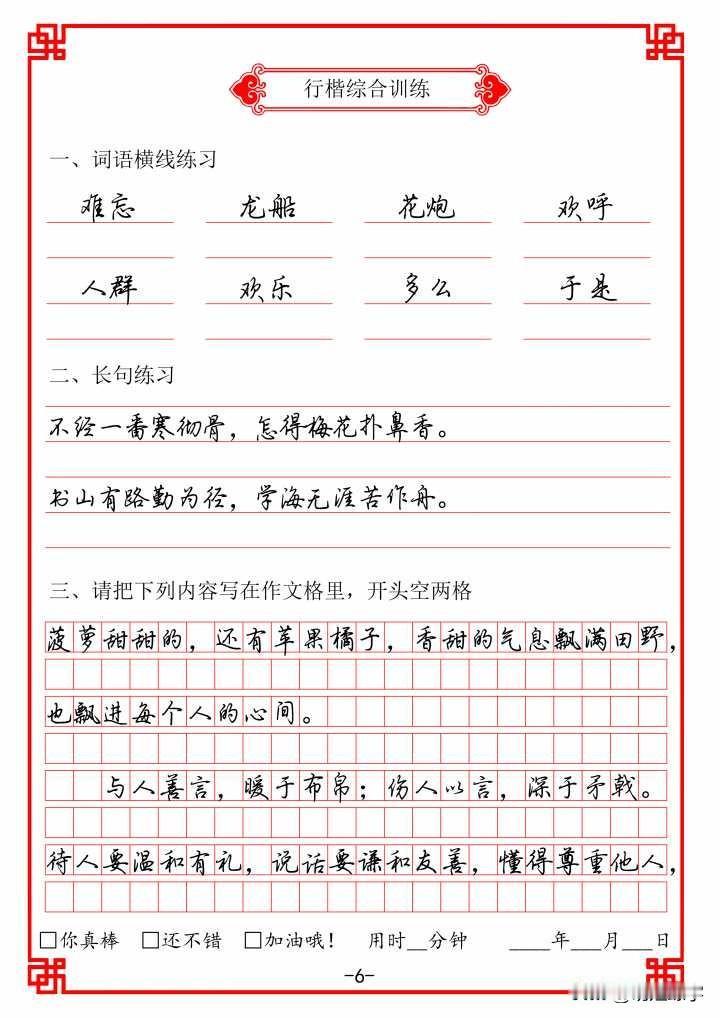 行楷综合训练
一、词语横线练习
难忘 龙船 花炮 欢呼
人群 欢乐 多么 于是
二、长句练习
不经一番寒彻骨，怎得梅花扑鼻香。
书山有路勤为径，学海无涯苦作舟。
三、请把下列内容写在作文格里，开头空两格
菠萝甜甜的，还有苹果橘子，香甜的气息飘满田野，
也飘进每个人的心间。
与人善言，暖于布帛；伤人以言，深于矛戟。
待人要温和有礼，说话要谦和友善，懂得尊重他人，
□你真棒 □还不错 □加油哦！ 用时__分钟 ____年___月___日
-6-